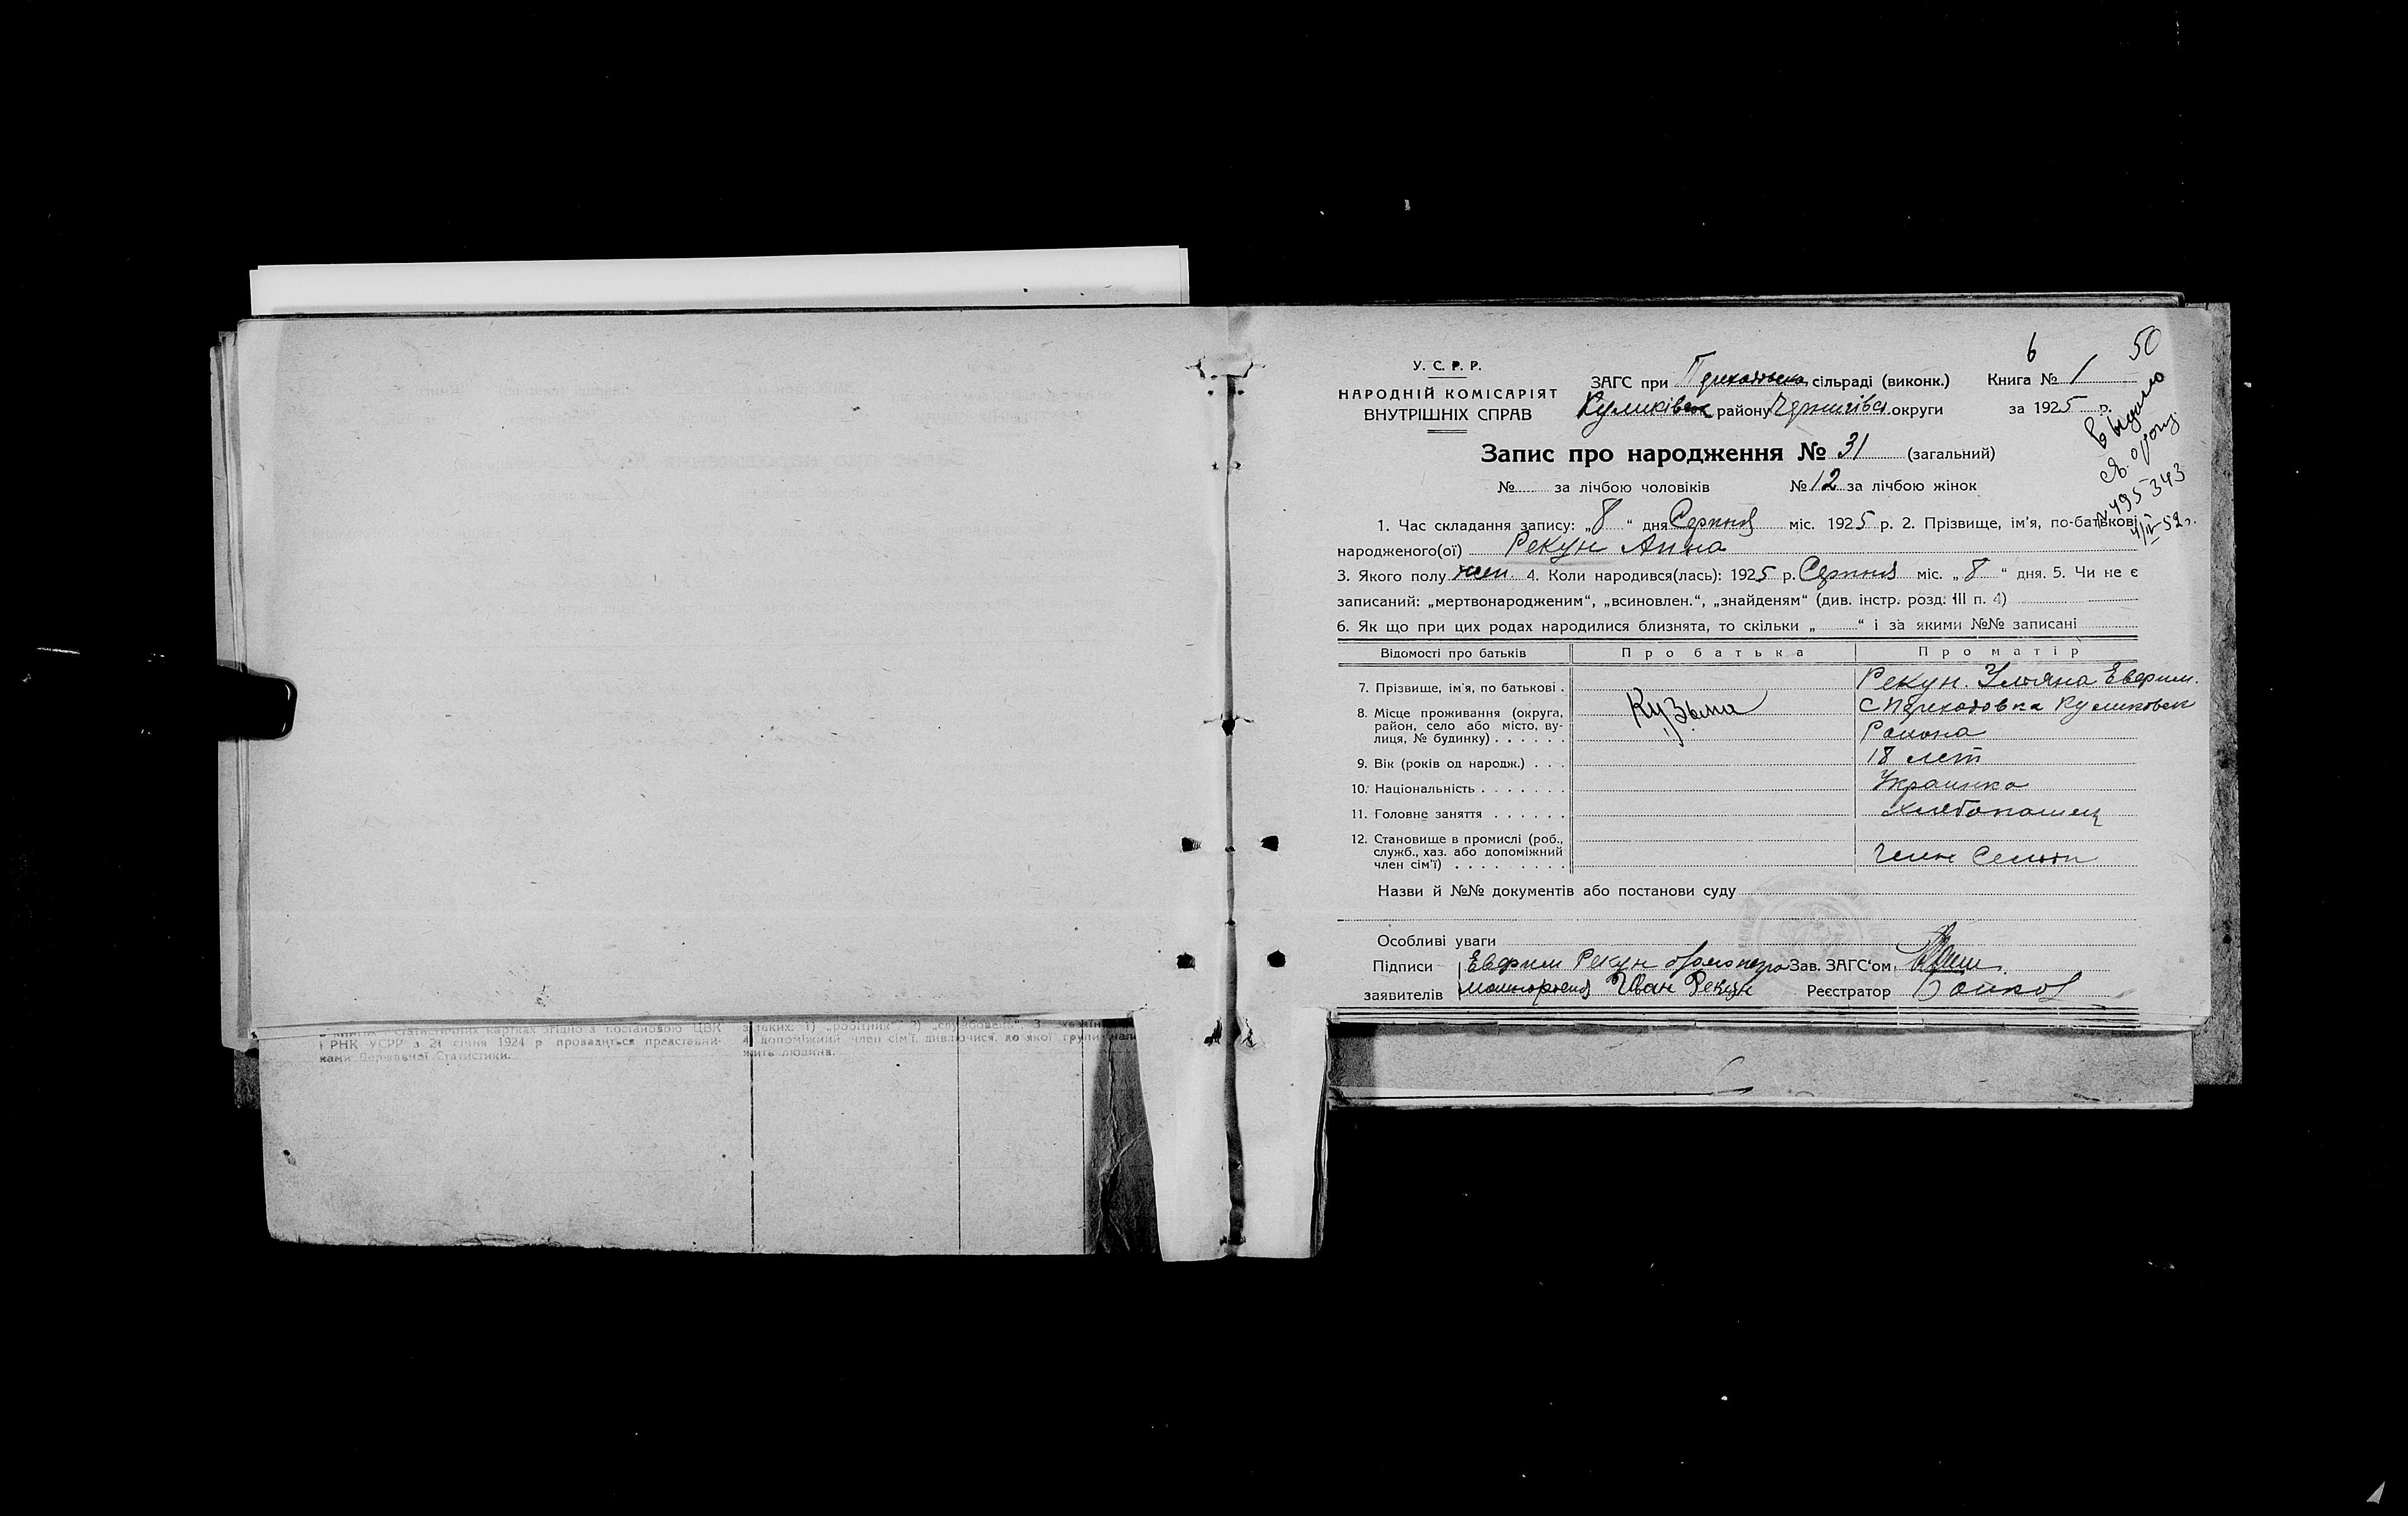 6 50
У. С. Р. Р.
НАРОДНІЙ КОМІСАРІЯТ
ВНУТРІШНІХ СПРАВ
ЗАГС при сільраді (виконк.) Книга № 1
Куликівск району Чернигівс. округи за 1925 р.
Выдано
495343
Запис про народження № 31 (загальний)
№ за лічбою чоловіків № 12 за лічбою жінок
1. Час складання запису: „8“ дня Серпня міс. 1925 р. 2. Прізвище, ім'я, по-батькові
народженого(ої) Рекун Анна
3. Якого полу жен. 4. Коли народився(лась): 1925 р. Серпня міс. „8“ дня. 5. Чи не є
записаний: „мертвонародженим“, „всиновлен.“, „знайденям“ (див. інстр. розд. III п. 4)
6. Як що при цих родах народилися близнята, то скільки „ “ і за якими №№ записані
Відомості про батьків Про батька Про матір
7. Прізвище, ім'я, по батькові . Рекун. Уляна Ефрим.
8. Місце проживання (округа, район, село або місто, вулиця, № будинку) . . . . . . Кузьма Куликовск
Района
9. Вік (років од народж.) . . . 18 лет
10. Національність . . . . . . . Украинка
11. Головне заняття . . . . . . хлебопашец
12. Становище в промислі (роб.,
служб., хаз. або допоміжний
член сім'ї) . . . . . . . . . Член Семьи
Назви й №№ документів або постанови суду
Особливі уваги
Підписи Рекун Зав. ЗАГС'ом
заявителів Иван Рекун Реєстратор
статистичних картках згідно з постановою ЦВК
і РНК УСРР з 21 січня 1924 р провадиться представни-
ками Державної Статистики.
з таких: 1) „робітник“ 2)
4) допоміжний член сім'ї, дивлючися, до якої групи
жить людина.